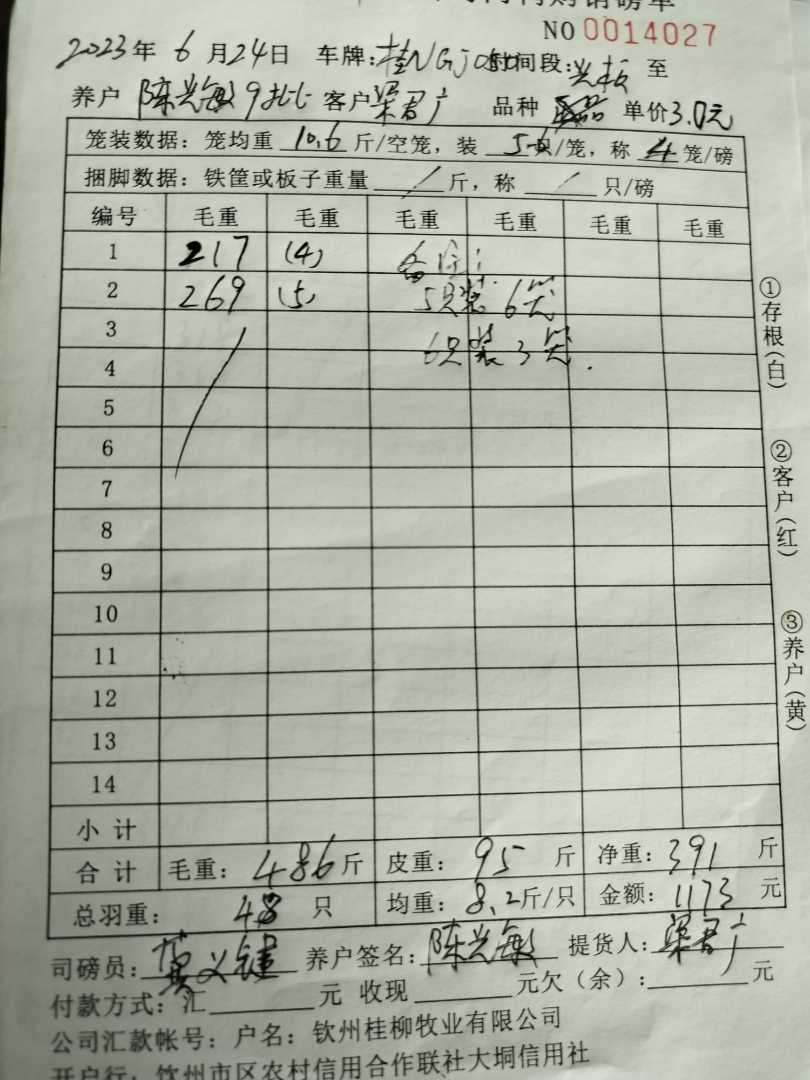 购销磅单
NO 0014027
2023年 6 月24日 车牌:桂NGJ 时间段: 至
养户 陈兴敏9批 客户 梁君广 品种 单价3.0元
笼装数据：笼均重 10.6 斤/空笼，装 5-6只/笼，称 4 笼/磅
捆脚数据：铁筐或板子重量 / 斤，称 / 只/磅
编号 毛重 毛重 毛重 毛重 毛重 毛重
1 217 (4) 备注:
2 269 (5) 5只装6笼
3 6只装3笼.
4
5
6
7
8
9
10
11
12
13
14
小计
合计 毛重: 486斤 皮重: 95 斤 净重: 391 斤
总羽重: 48 只 均重: 8.2斤/只 金额: 1173 元
司磅员: 黄义键 养户签名: 陈兴敏 提货人: 梁君广
付款方式: 汇 元 收现 元欠（余）: 元
公司汇款帐号：户名：钦州桂柳牧业有限公司
开户行：钦州市区农村信用合作联社大垌信用社
①存根(白)
②客户(红)
③养户(黄)